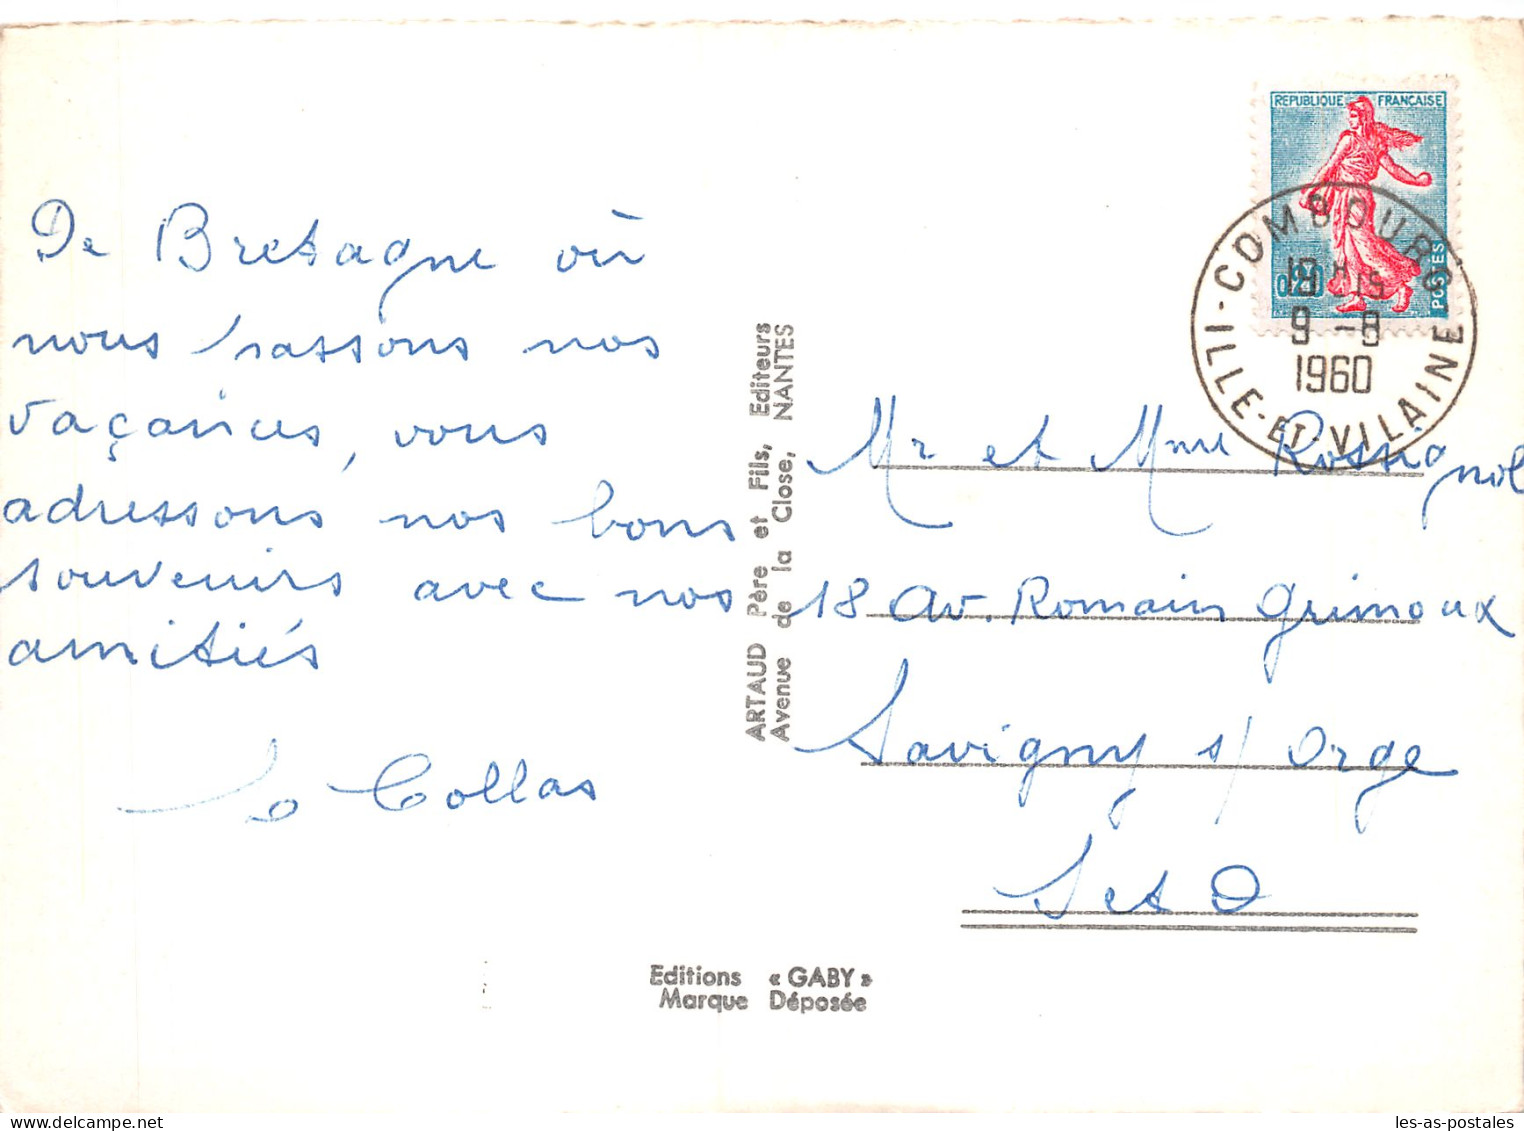 De Bretagne où
nous passons nos
vaçances, vous
adressons nos bons
souvenirs avec nos
amitiés
Collas
ARTAUD Père et Fils, Editeurs
Avenue de la Close, NANTES
REPUBLIQUE FRANÇAISE
0,20
POSTES
COMBOURG
18H15
9 -8
1960
ILLE-ET-VILAINE
Mr et Mme Rossignol
18 av. Romain Grimoux
Savigny s/ Orge
S et O
Editions « GABY »
Marque Déposée
les-as-postales